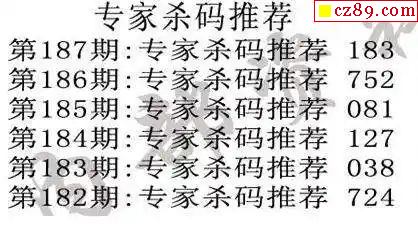 专家杀码推荐
cz89.com
第187期:专家杀码推荐 183
第186期:专家杀码推荐 752
第185期:专家杀码推荐 081
第184期:专家杀码推荐 127
第183期:专家杀码推荐 038
第182期:专家杀码推荐 724